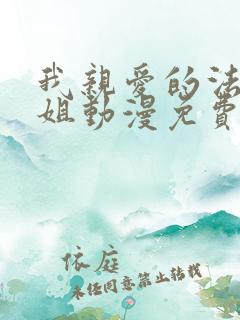 我親愛的法
姐動漫免費
依庭
未任同意禁止转载